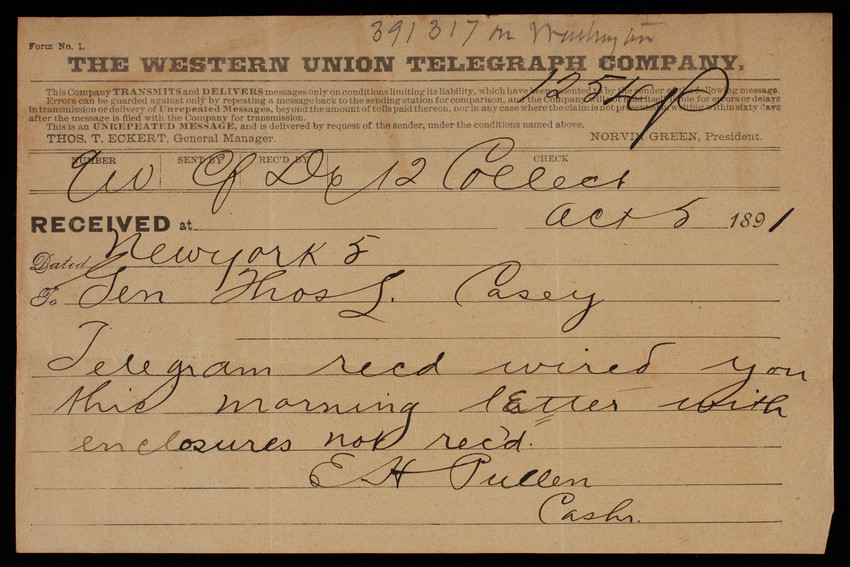 391 317 on Washington
Form No. 1.
THE WESTERN UNION TELEGRAPH COMPANY.
This Company TRANSMITS and DELIVERS messages only on conditions limiting its liability, which have been assented to by the sender of the following message.
Errors can be guarded against only by repeating a message back to the sending station for comparison, and the Company will not hold itself liable for errors or delays
in transmission or delivery of Unrepeated Messages, beyond the amount of tolls paid thereon, nor in any case where the claim is not presented in writing within sixty days
after the message is filed with the Company for transmission.
This is an UNREPEATED MESSAGE, and is delivered by request of the sender, under the conditions named above.
THOS. T. ECKERT, General Manager. NORVIN GREEN, President.
1251 p
NUMBER SENT BY REC'D BY CHECK
Cf Dx 12 Collect
RECEIVED at Oct 5 1891
Dated New york 5
To Gen Thos L. Casey
Telegram recd wired you
this morning letter with
enclosures not rec'd.
E H Pullen
Cashr.